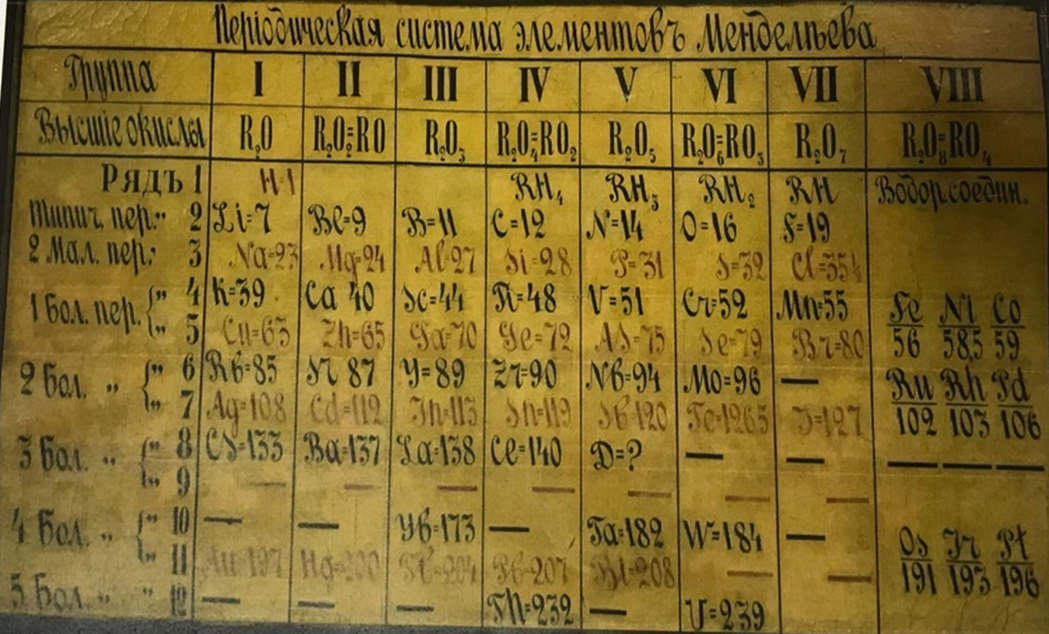 Періодическая система элементовъ Менделѣева
Группа I II III IV V VI VII VIII
Высшіе окислы R₂O R₂O₂=RO R₂O₃ R₂O₄=RO₂ R₂O₅ R₂O₆=RO₃ R₂O₇ R₂O₈=RO₄
Рядъ 1 H=1 RH₄ RH₃ RH₂ RH Водор.соедин.
Типич. пер.„ 2 Li=7 Be=9 B=11 C=12 N=14 O=16 F=19
2 Мал. пер.: 3 Na=23 Mg=24 Al=27 Si=28 P=31 S=32 Cl=35½
1 бол. пер. { „ 4 K=39 Ca 40 Sc=44 Ti=48 V=51 Cr=52 Mn=55 Fe Ni Co
„ 5 Cu=63 Zn=65 Ga=70 Ge=72 AS=75 Se=79 Br=80 56 58,5 59
2 бол. „ { „ 6 Rb=85 Sr 87 Y=89 Zr=90 Nb=94 Mo=96 — Ru Rh Pd
„ 7 Ag=108 Cd=112 In=113 Sn=119 Sb=120 Te=126,5 J=127 102 103 106
3 бол. „ { „ 8 CS=133 Ba=137 La=138 Ce=140 D=? — — — — —
„ 9 — — — — — — —
4 бол. „ { „ 10 — — Yb=173 — Ta=182 W=184 — Os Ir Pt
„ 11 Au=197 Hg=200 Tl=204 Pb=207 Bi=208 — — 191 193 196
5 бол. „ „ 12 — — — Th=232 — U=239